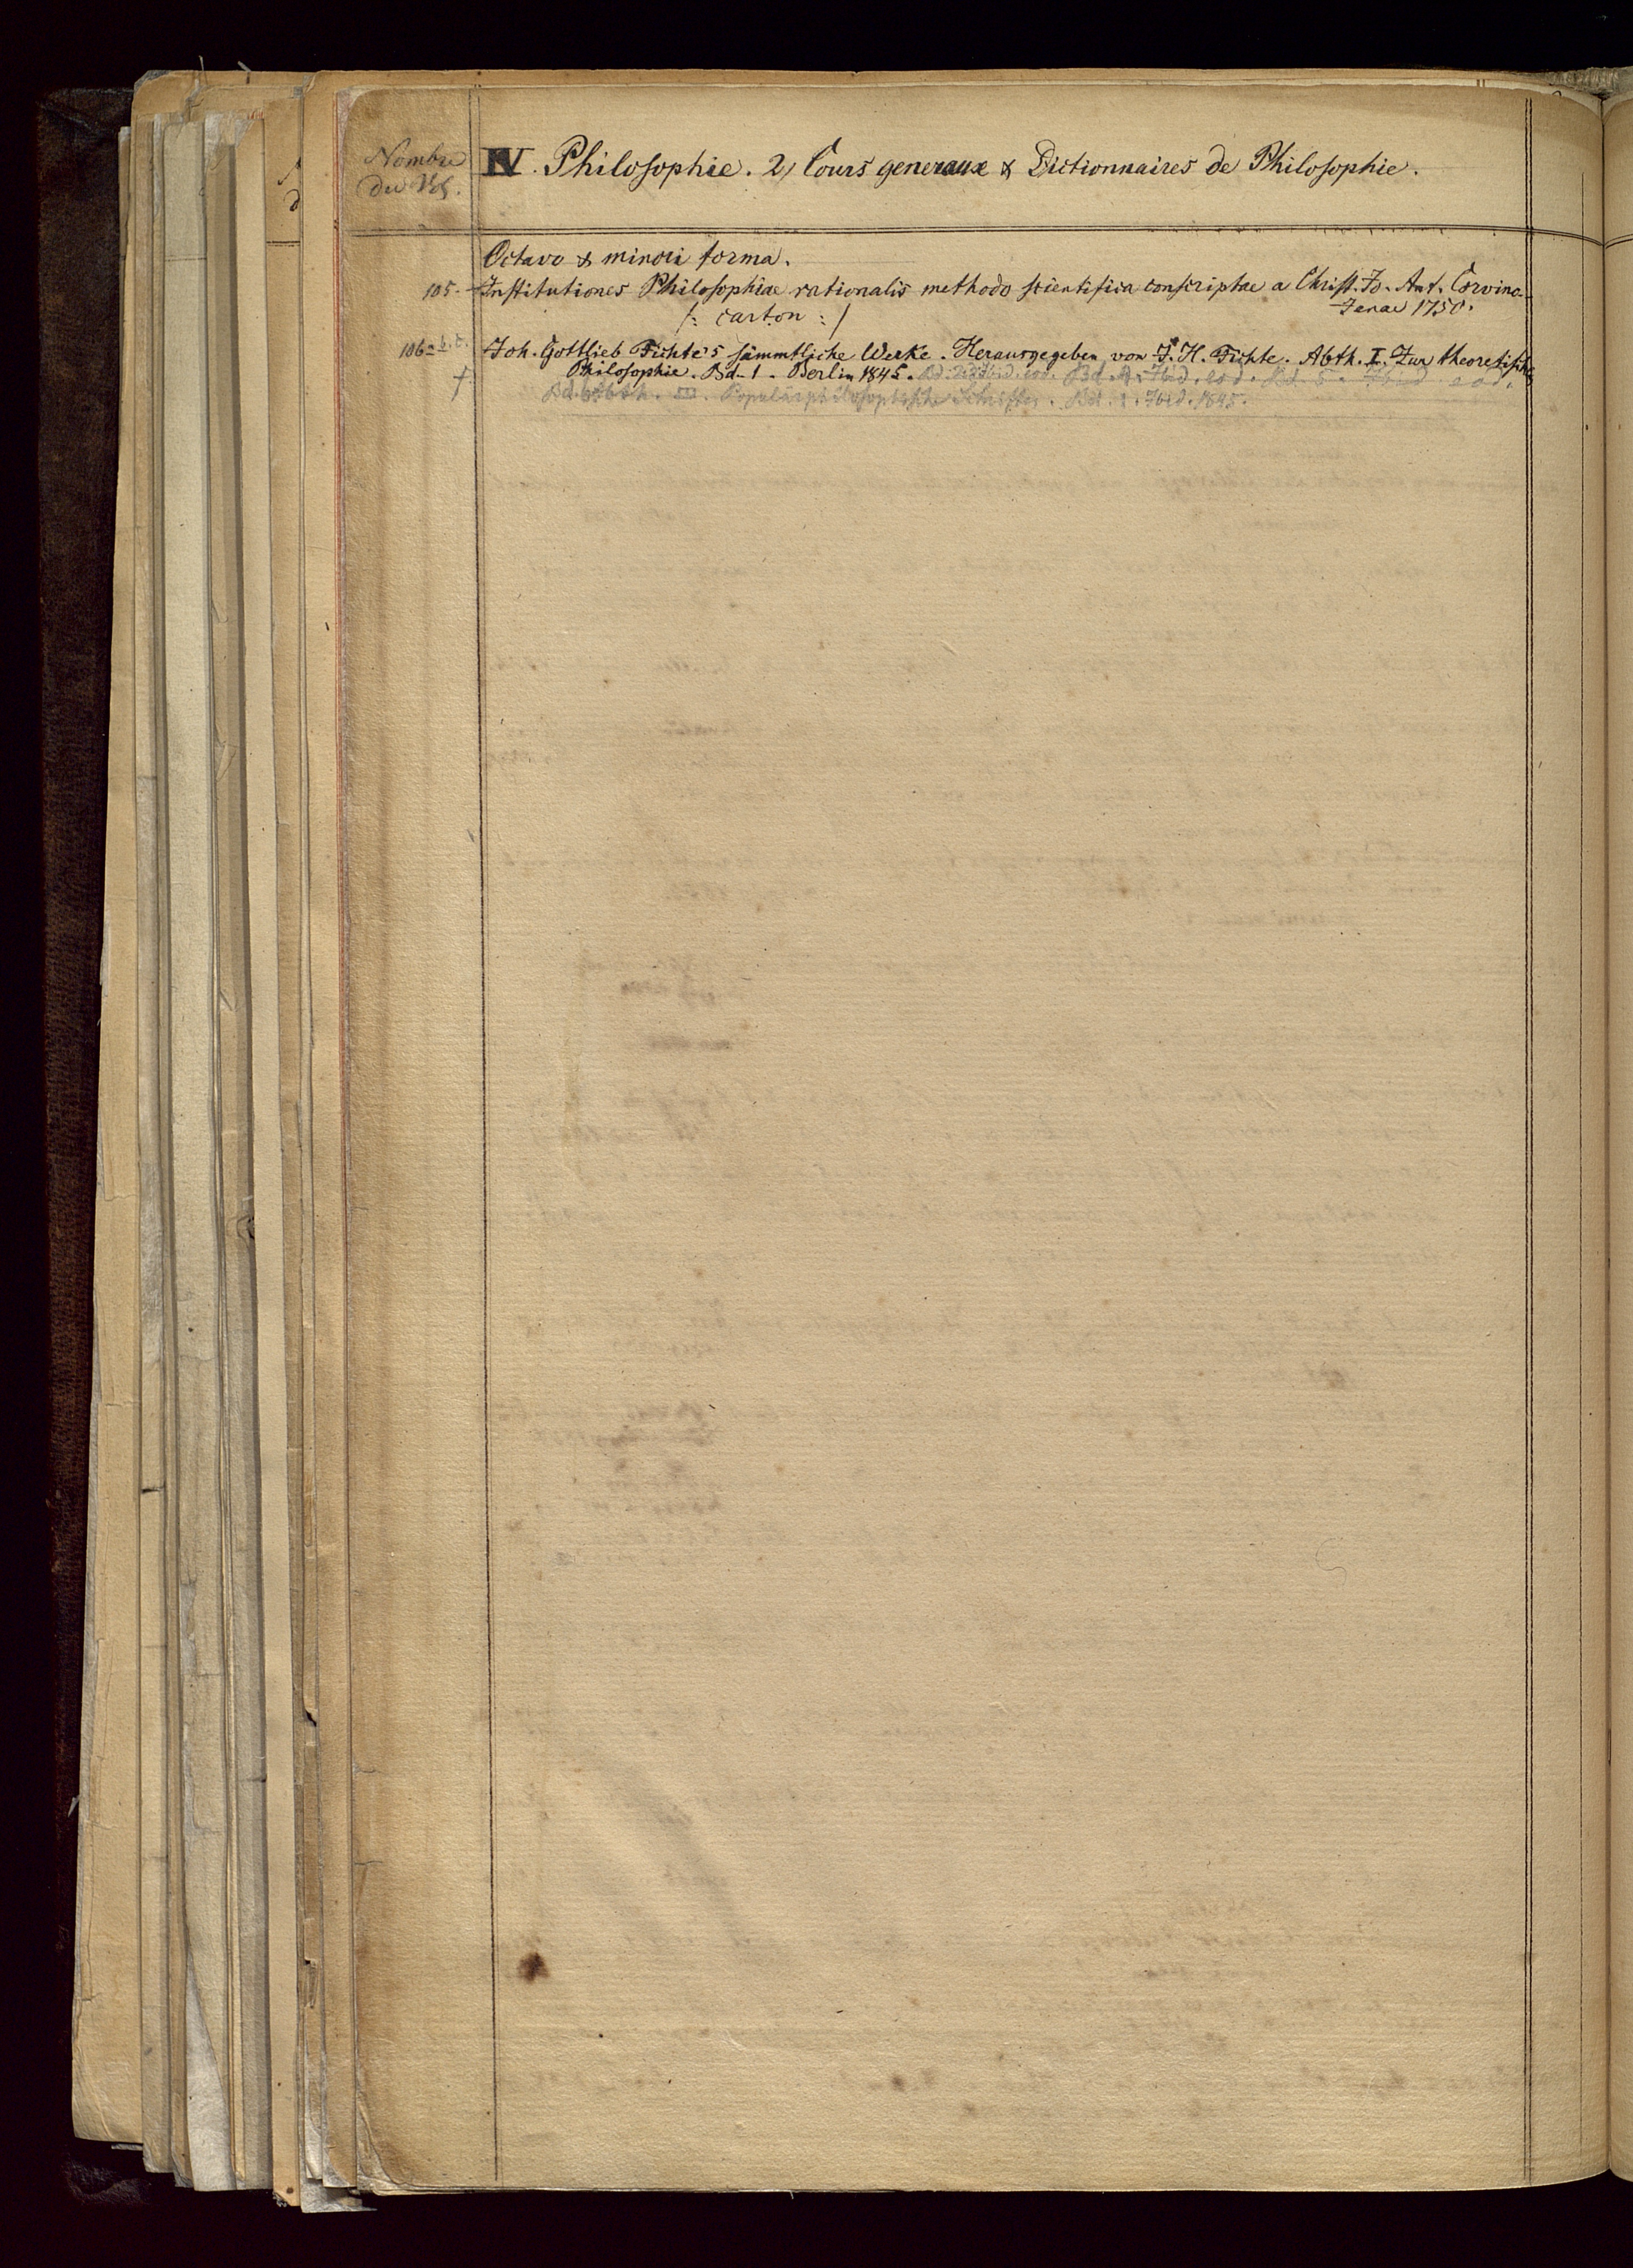 Nombre
du Vol.
IV. Philosophie. 2, Cours generaux & Dictionnaires de Philosophie.
Octavo & minori forma.
105. Institutiones Philosophiae rationalis methodo scientifica conscriptae a Christ. Jo. Ant. Corvino.
Jenae 1750.
/: carton :/
106 a b. c. Joh. Gottlieb Fichte's sämmtliche Werke. Herausgegeben von J. H. Fichte. Abth. I. Zur theoretischen
Philosophie. Bd. 1. Berlin 1845. Bd. 2. Ibid. eod. Bd. Ibid. eod. Bd. 5. Ibid eod.
† Bd. 6. Abth. III. Popularphilosophische Schriften. Bd. 1. Ibid. 1845.